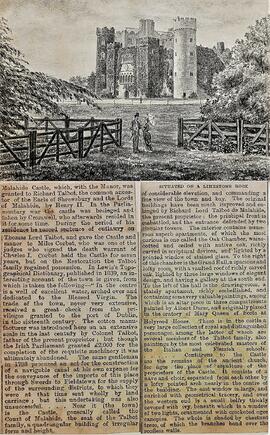 Malahide Castle, which, with the Manor, was
granted to Richard Talbot, the common ances-
tor of the Earls of Shrewsbury and the Lords
of Malahide, by Henry II. In the Parlia-
mentary war the castle was besieged and
taken by Cromwell, who afterwards resided in
it for some time. During the period of his
residence he passed sentence of outlawry on
Thomas Lord Talbot, and gave the Castle and
Manor to Miles Corbet, who was one of the
judges who signed the death warrant of
Charles I. Corbet held the Castle for seven
years, but on the Restoration the Talbot
family regained possession. In Lewis's Topo-
graphical Dictionary, published in 1839, an in-
teresting account of the place is given, from
which is taken the following:—"In the centre
is a well of excellent water, arched over and
dedicated to the Blessed Virgin. The
trade of the town, never very extensive,
received a great check from the pri-
vileges granted to the port of Dublin,
in the sixteenth century. The cotton manu-
facture was introduced here on an extensive
scale in the last century by Colonel Talbot,
father of the present proprietor; but though
the Irish Parliament granted £2000 for the
completion of the requisite machinery it was
ultimately abandoned. The same gentleman
in 1788 procured an Act for the construction
of a navigable canal at his own expense for
the conveyance of the imports of this place
through Swords to Fieldstown for the supply
of the surrounding districts, to which they
were at that time sent wholly by land
carriage; but this undertaking was also
unsuccessful. Near it (the town)
is the Castle, generally called the
Court of Malahide, the seat of the Talbot
family, a quadrangular building of irregular
form and height,
SITUATED ON A LIMESTONE ROCK
of considerable elevation, and commanding a
fine view of the town and bay. The original
buildings have been much improved and en-
larged by Richard Lord Talbot de Malahide,
the present proprietor; the principal front is
embattled, and the entrance defended by two
circular towers. The interior contains nume-
rous superb apartments, of which the most
curious is one called the Oak Chamber, wains-
coted and ceiled with native oak, richly
carved in scriptural devices, and lighted by a
pointed window of stained glass. To the right
of this chamber is the Grand Hall, a spacious and
lofty room, with a vaulted roof of richly carved
oak, lighted by three large windows of elegant
design, and having a gallery at the south end.
To the left of the hall is the drawingroom, a
stately apartment, richly embellished, and
containing some very valuable paintings, among
which is an altar piece in three compartments
in the oratory of Mary Queen of Scots at
Holyrood House. There is in the castle a
very large collection of royal and distinguished
personages, among the latter of which are
several members of the Talbot family, also
paintings by the most celebrated masters of
Contiguous to the Castle
are the remains of the ancient church,
for ages the place of sepulture of the
proprietors of the Castle. It consists of a
nave and choir, separated from each other by a
lofty pointed arch nearly in the centre of
the building. The east window is large, and
enriched with geometrical tracery, and over
the western end is a small belfry thickly
covered with ivy, beneath which is a window
of two lights, ornamented with crocketed ogee
canopies. The edifice is shaded by chestnut
trees, of which the branches hang over the
roofless walls.